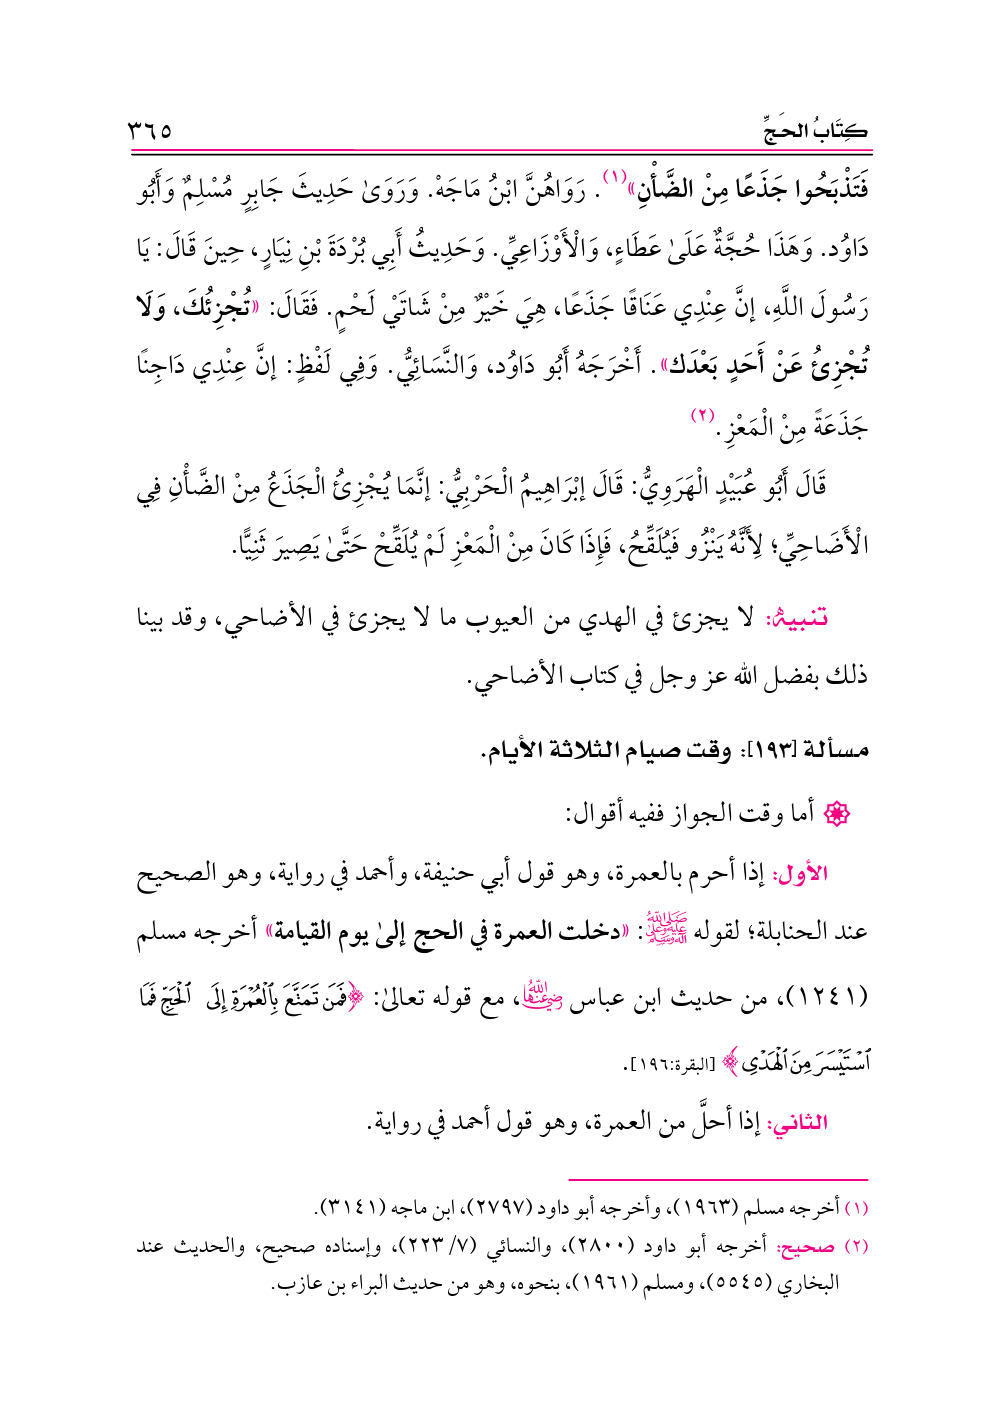 كِتَابُ الحَجِّ ٣٦٥
فَتَذْبَحُوا جَذَعًا مِنْ الضَّأْنِ»(١). رَوَاهُنَّ ابْنُ مَاجَهْ. وَرَوَىٰ حَدِيثَ جَابِرٍ مُسْلِمٌ وَأَبُو
دَاوُد. وَهَذَا حُجَّةٌ عَلَىٰ عَطَاءٍ، وَالْأَوْزَاعِيِّ. وَحَدِيثُ أَبِي بُرْدَةَ بْنِ نِيَارٍ، حِينَ قَالَ: يَا
رَسُولَ اللَّهِ، إنَّ عِنْدِي عَنَاقًا جَذَعًا، هِيَ خَيْرٌ مِنْ شَاتَيْ لَحْمٍ. فَقَالَ: «تُجْزِئُكَ، وَلَا
تُجْزِئُ عَنْ أَحَدٍ بَعْدَك». أَخْرَجَهُ أَبُو دَاوُد، وَالنَّسَائِيُّ. وَفِي لَفْظٍ: إنَّ عِنْدِي دَاجِنًا
جَذَعَةً مِنْ الْمَعْزِ.(٢)
قَالَ أَبُو عُبَيْدٍ الْهَرَوِيُّ: قَالَ إبْرَاهِيمُ الْحَرْبِيُّ: إنَّمَا يُجْزِئُ الْجَذَعُ مِنْ الضَّأْنِ فِي
الْأَضَاحِيِّ؛ لِأَنَّهُ يَنْزُو فَيُلَقِّحُ، فَإِذَا كَانَ مِنْ الْمَعْزِ لَمْ يُلَقِّحْ حَتَّىٰ يَصِيرَ ثَنِيًّا.
تنبيهٌ: لا يجزئ في الهدي من العيوب ما لا يجزئ في الأضاحي، وقد بينا
ذلك بفضل الله عز وجل في كتاب الأضاحي.
مسألة [١٩٣]: وقت صيام الثلاثة الأيام.
أما وقت الجواز ففيه أقوال:
الأول: إذا أحرم بالعمرة، وهو قول أبي حنيفة، وأحمد في رواية، وهو الصحيح
عند الحنابلة؛ لقوله ﷺ: «دخلت العمرة في الحج إلىٰ يوم القيامة» أخرجه مسلم
(١٢٤١)، من حديث ابن عباس رضي الله عنهما، مع قوله تعالىٰ: ﴿فَمَن تَمَتَّعَ بِٱلْعُمْرَةِ إِلَى ٱلْحَجِّ فَمَا
ٱسْتَيْسَرَ مِنَ ٱلْهَدْىِ﴾ [البقرة:١٩٦].
الثاني: إذا أحلَّ من العمرة، وهو قول أحمد في رواية.
(١) أخرجه مسلم (١٩٦٣)، وأخرجه أبو داود (٢٧٩٧)، ابن ماجه (٣١٤١).
(٢) صحيح: أخرجه أبو داود (٢٨٠٠)، والنسائي (٧/ ٢٢٣)، وإسناده صحيح، والحديث عند
البخاري (٥٥٤٥)، ومسلم (١٩٦١)، بنحوه، وهو من حديث البراء بن عازب.